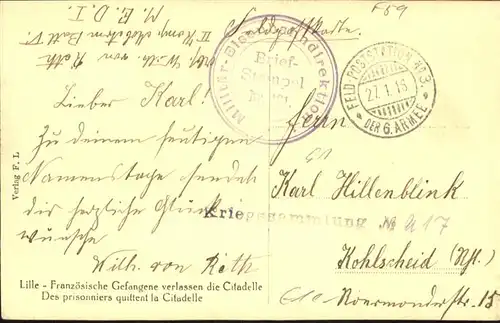 F59
M. E. D. I.
Feldpostkarte.
Wilh. von Rath
Militär-Eisenbahndirektion
Brief-
Stempel
FELD-POSTSTATION Nº 3
27.1.15
DER 6. ARMEE
Lieber Karl!
Zu deinem heutigen
Namenstage sendet
dir herzliche Glück-
wünsche
Wilh. von Rath
Herrn
Karl Hillenblink
Kriegssammlung № A 17
Kohlscheid (Rhl.)
Roermonderstr. 15
Verlag F. L
Lille - Französische Gefangene verlassen die Citadelle
Des prisonniers quittent la Citadelle